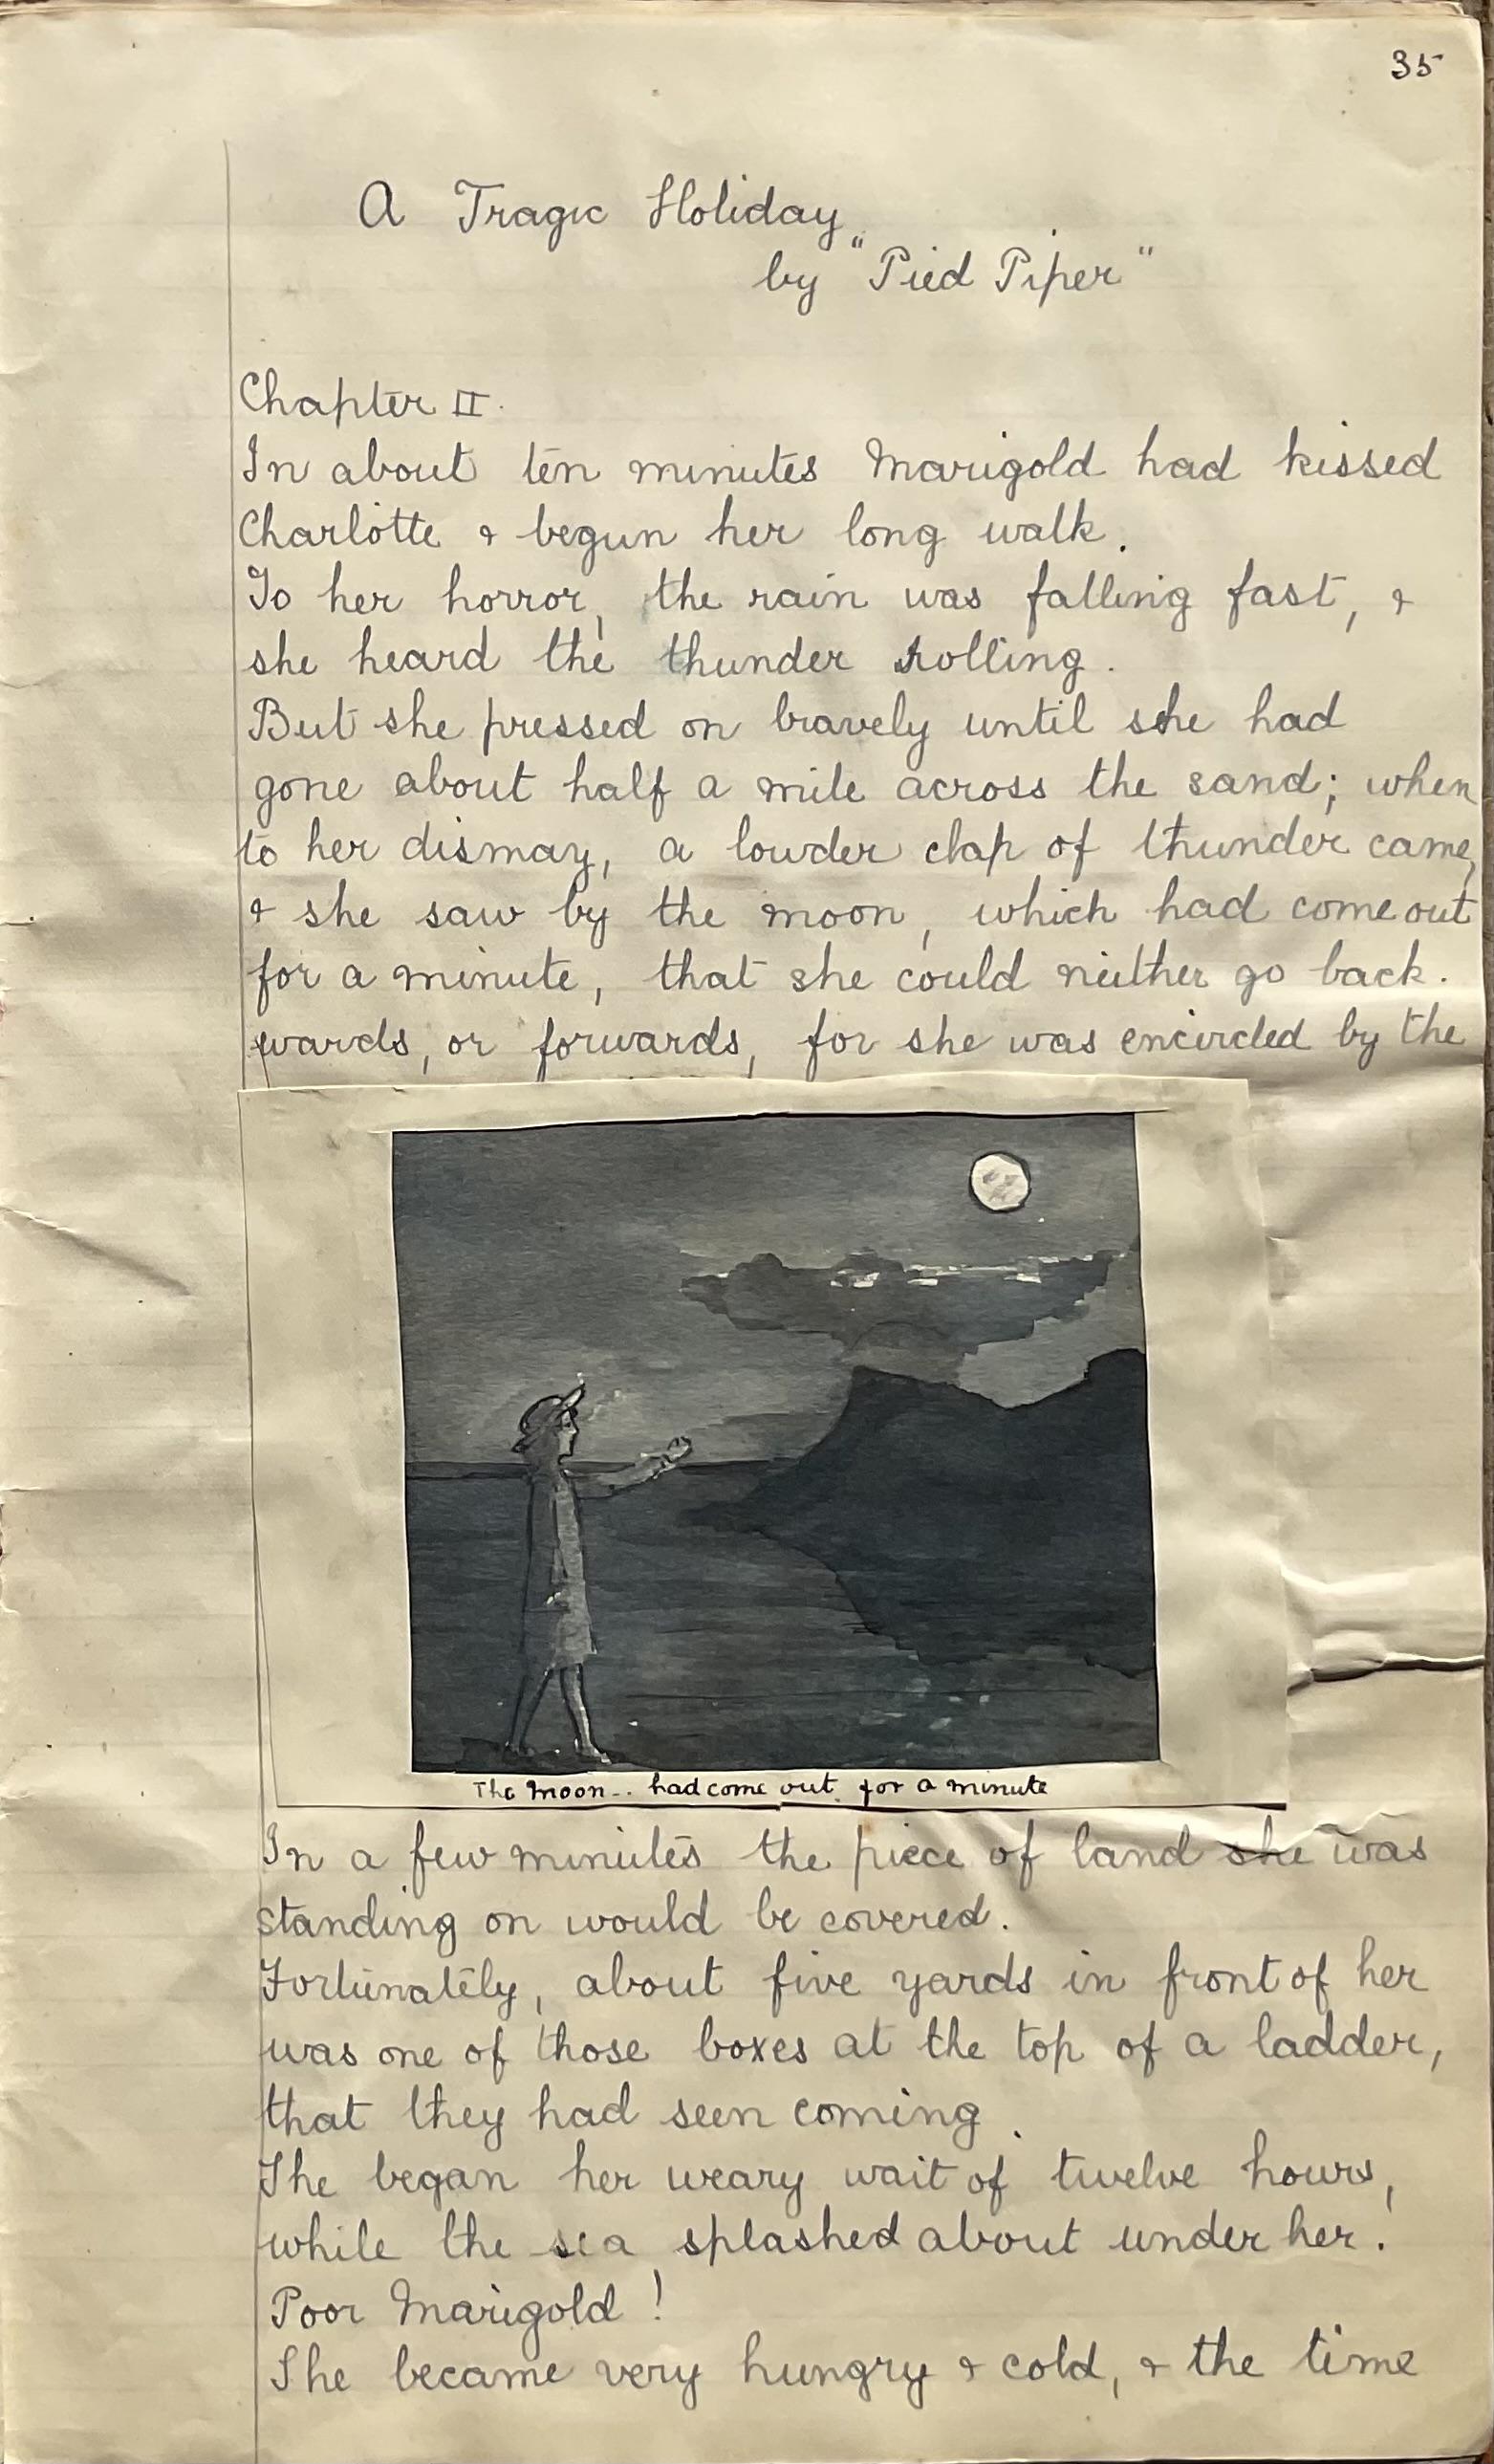 35
A Tragic Holiday
by "Pied Piper"
Chapter II.
In about ten minutes Marigold had kissed
Charlotte & begun her long walk.
To her horror, the rain was falling fast, &
she heard the thunder rolling.
But she pressed on bravely until she had
gone about half a mile across the sand; when
to her dismay, a louder clap of thunder came,
& she saw by the moon, which had come out
for a minute, that she could neither go back-
wards, or forwards, for she was encircled by the
The Moon... had come out for a minute
In a few minutes the piece of land she was
standing on would be covered.
Fortunately, about five yards in front of her
was one of those boxes at the top of a ladder,
that they had seen coming.
She began her weary wait of twelve hours,
while the sea splashed about under her.
Poor Marigold!
She became very hungry & cold, & the time